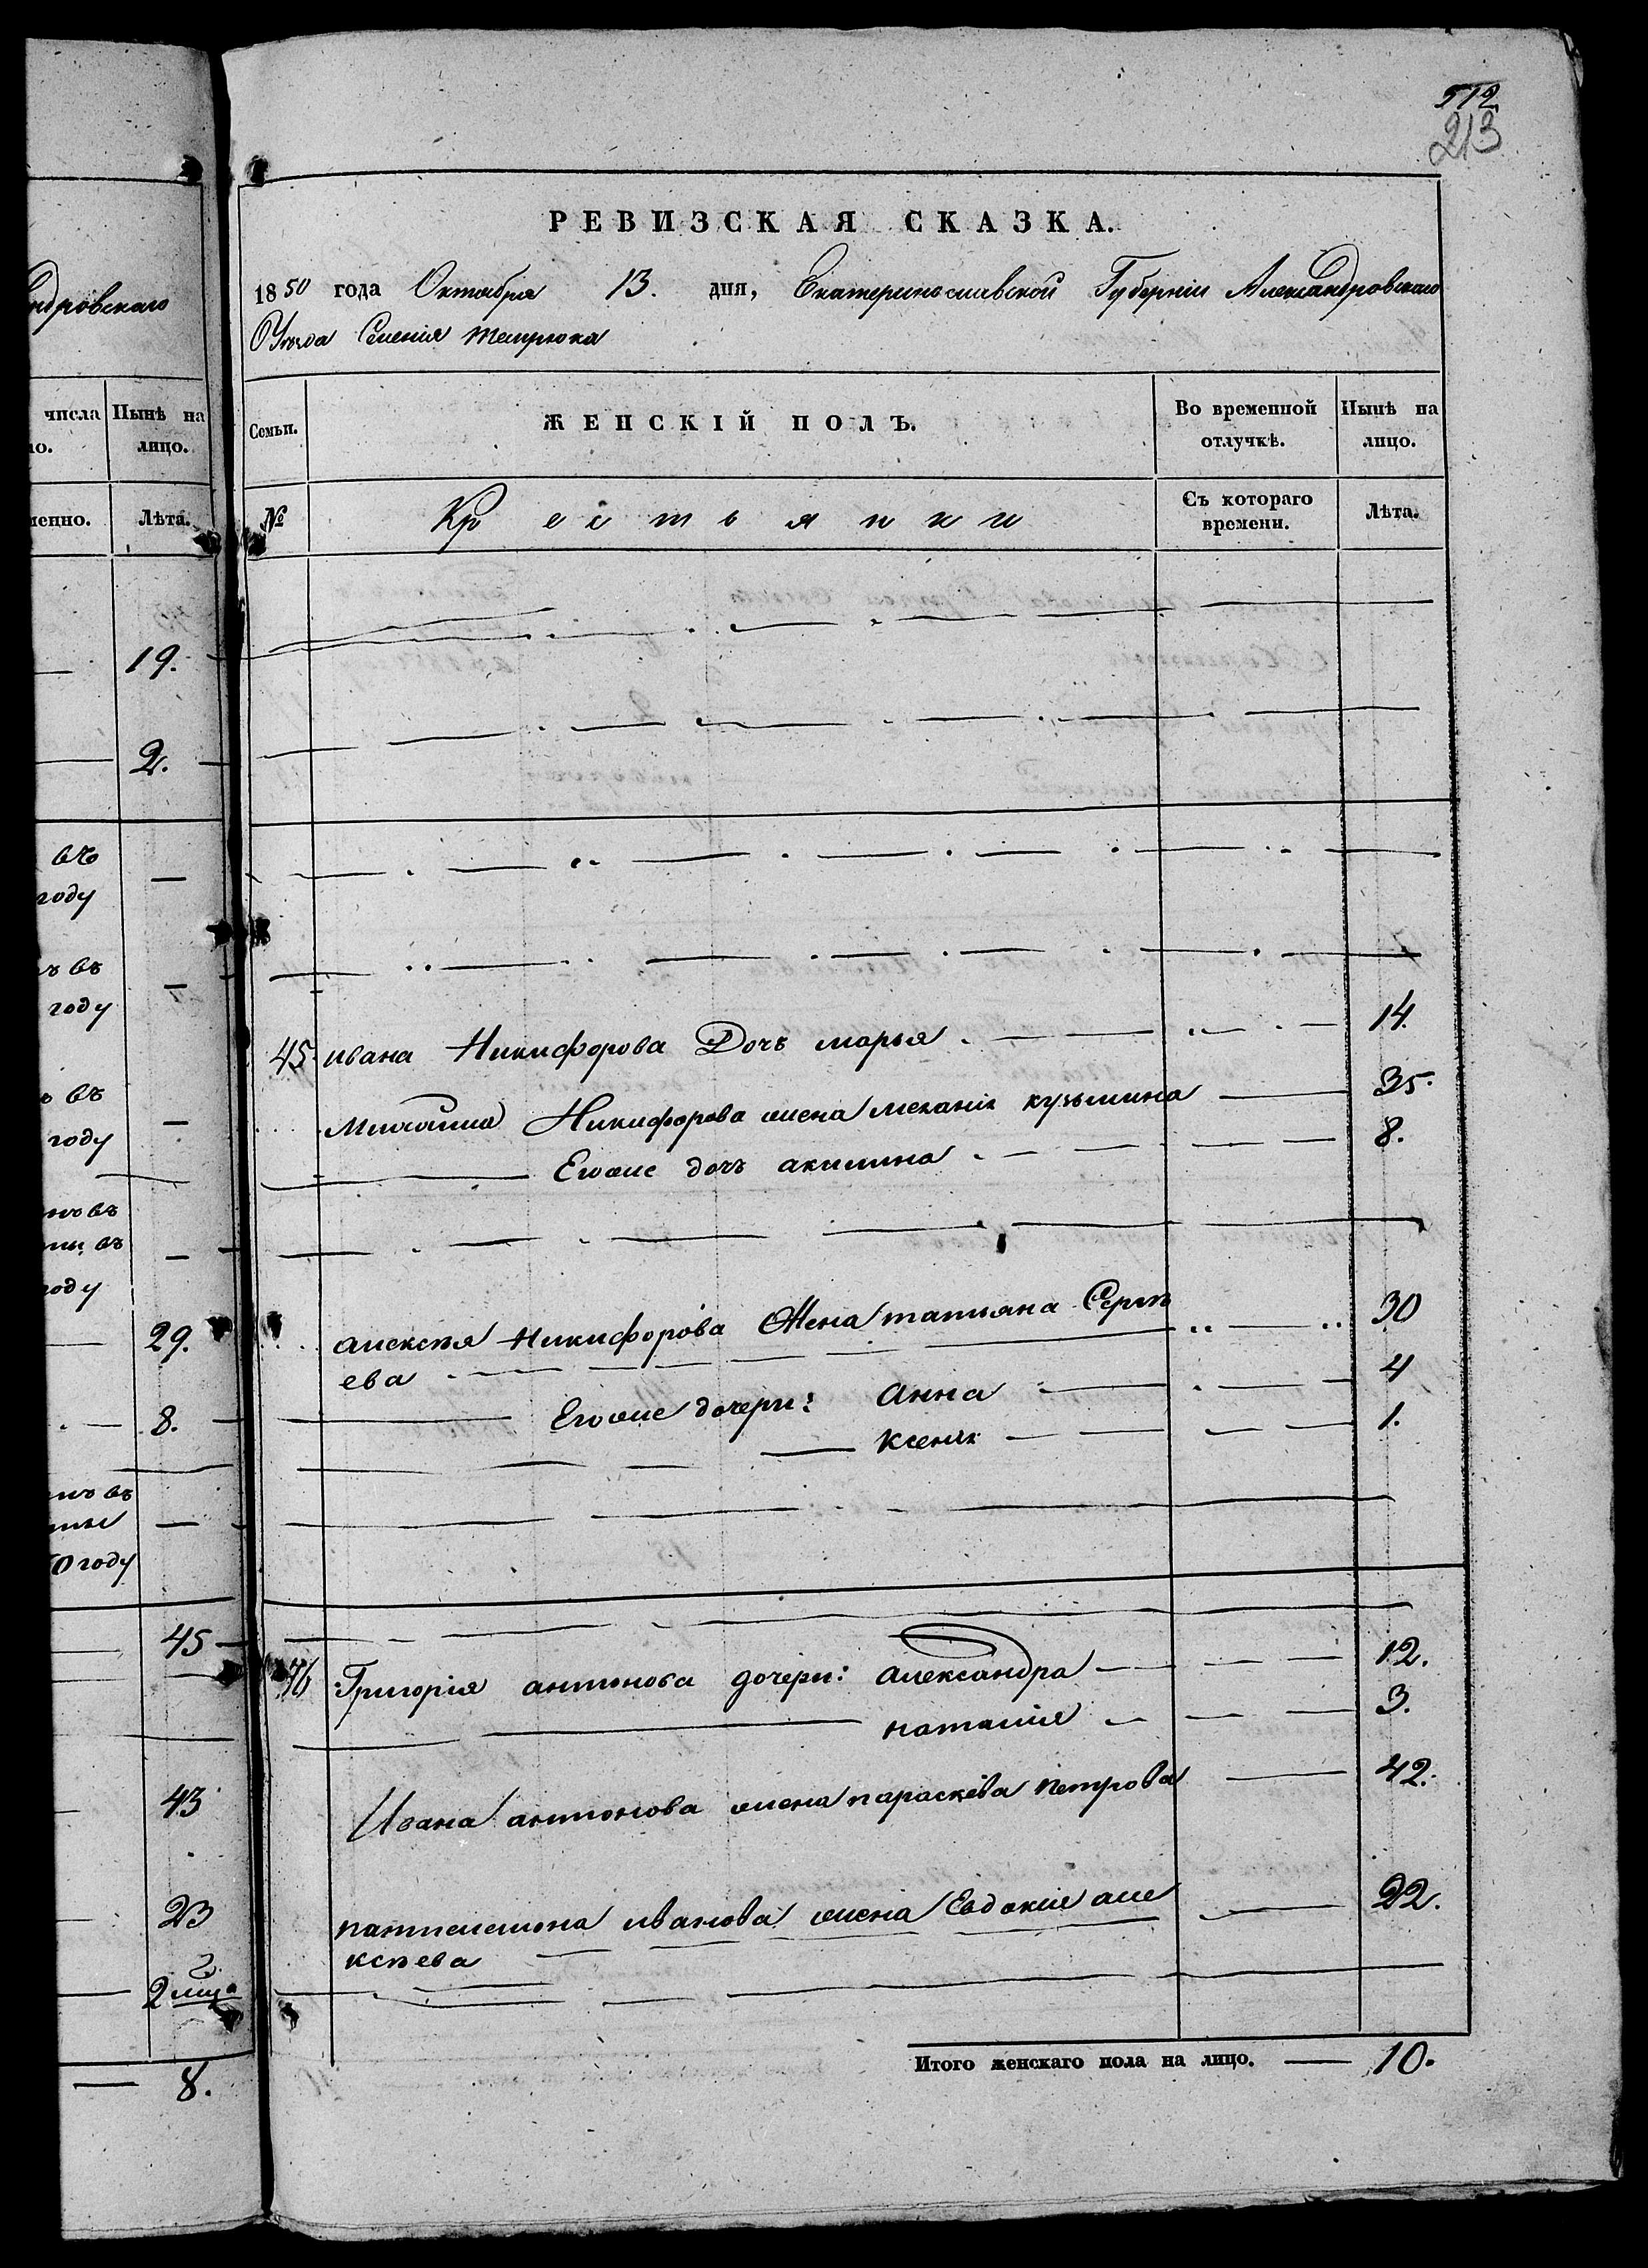 ндровскаго
числа Нынѣ на
но. лицо.
менно. Лѣта.
19.
2.
въ
году —
въ
году —
въ
году —
въ
въ —
году
29.
8.
въ
—
50 году
45
43
23
2.
2 лица
8.
512
213
РЕВИЗСКАЯ СКАЗКА.
1850 года Октября 13. дня, Екатеринославской Губерніи Александровскаго
Уѣзда Селенія Темрюка
Семьи. ЖЕНСКІЙ ПОЛЪ. Во временной отлучкѣ. Нынѣ на лицо.
№ Крестьянки Съ котораго времени. Лѣта.
45. ивана Никифорова Дочь марья 14.
Михайла Никифорова жена меланія кузьмина 35.
Егоже дочь акилина 8.
алексѣя Никифорова Жена татьяна Сергѣ 30
ева
Егоже дочери: Анна 4
Ксенія 1.
46 Григорія антонова дочери: Александра 12.
наталія 3.
Ивана антонова жена параскева петрова 42.
пантелемона иванова жена Евдокія але 22.
ксѣева
Итого женскаго пола на лицо. — 10.